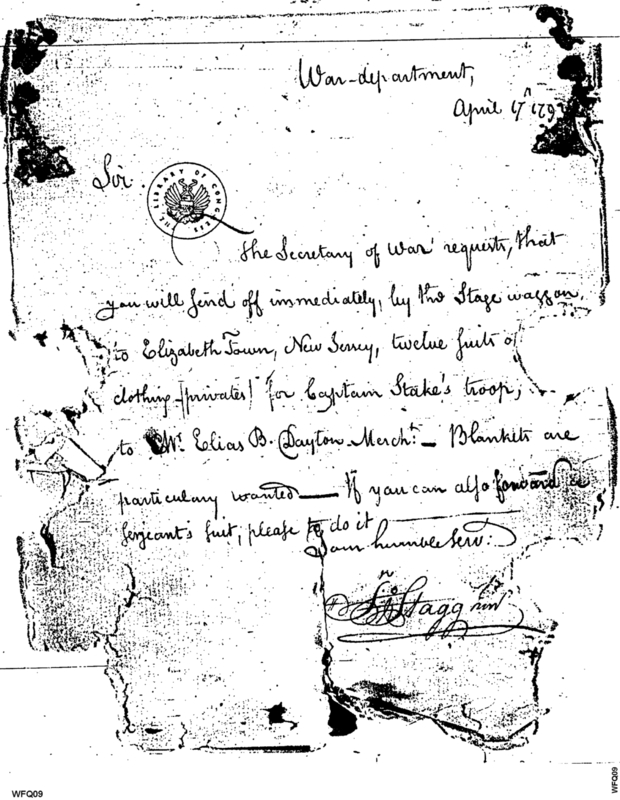 War-department,
April 17th 179
Sir.
THE LIBRARY OF CONGRESS
The Secretary of War requests, that
you will send off immediately, by the Stage waggon,
to Elizabeth Town, New Jersey, twelve suits of
clothing (privates) for Captain Stake's troop,
to Mr. Elias B. Dayton Mercht. — Blankets are
particulary wanted — If you can also forward a
Sergeant's suit, please to do it
I am humble Serv:
Jno Stagg junr
WFQ09
WFQ09